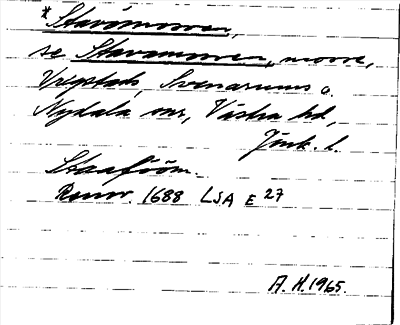 *Stavömossen,
se Stavamossen, mosse,
Vrigstads, Svenarums o.
Nydala snr, Västra hd,
Jönk. l.
Staaföön.
Renov. 1688 LSA E 27
A. H. 1965.